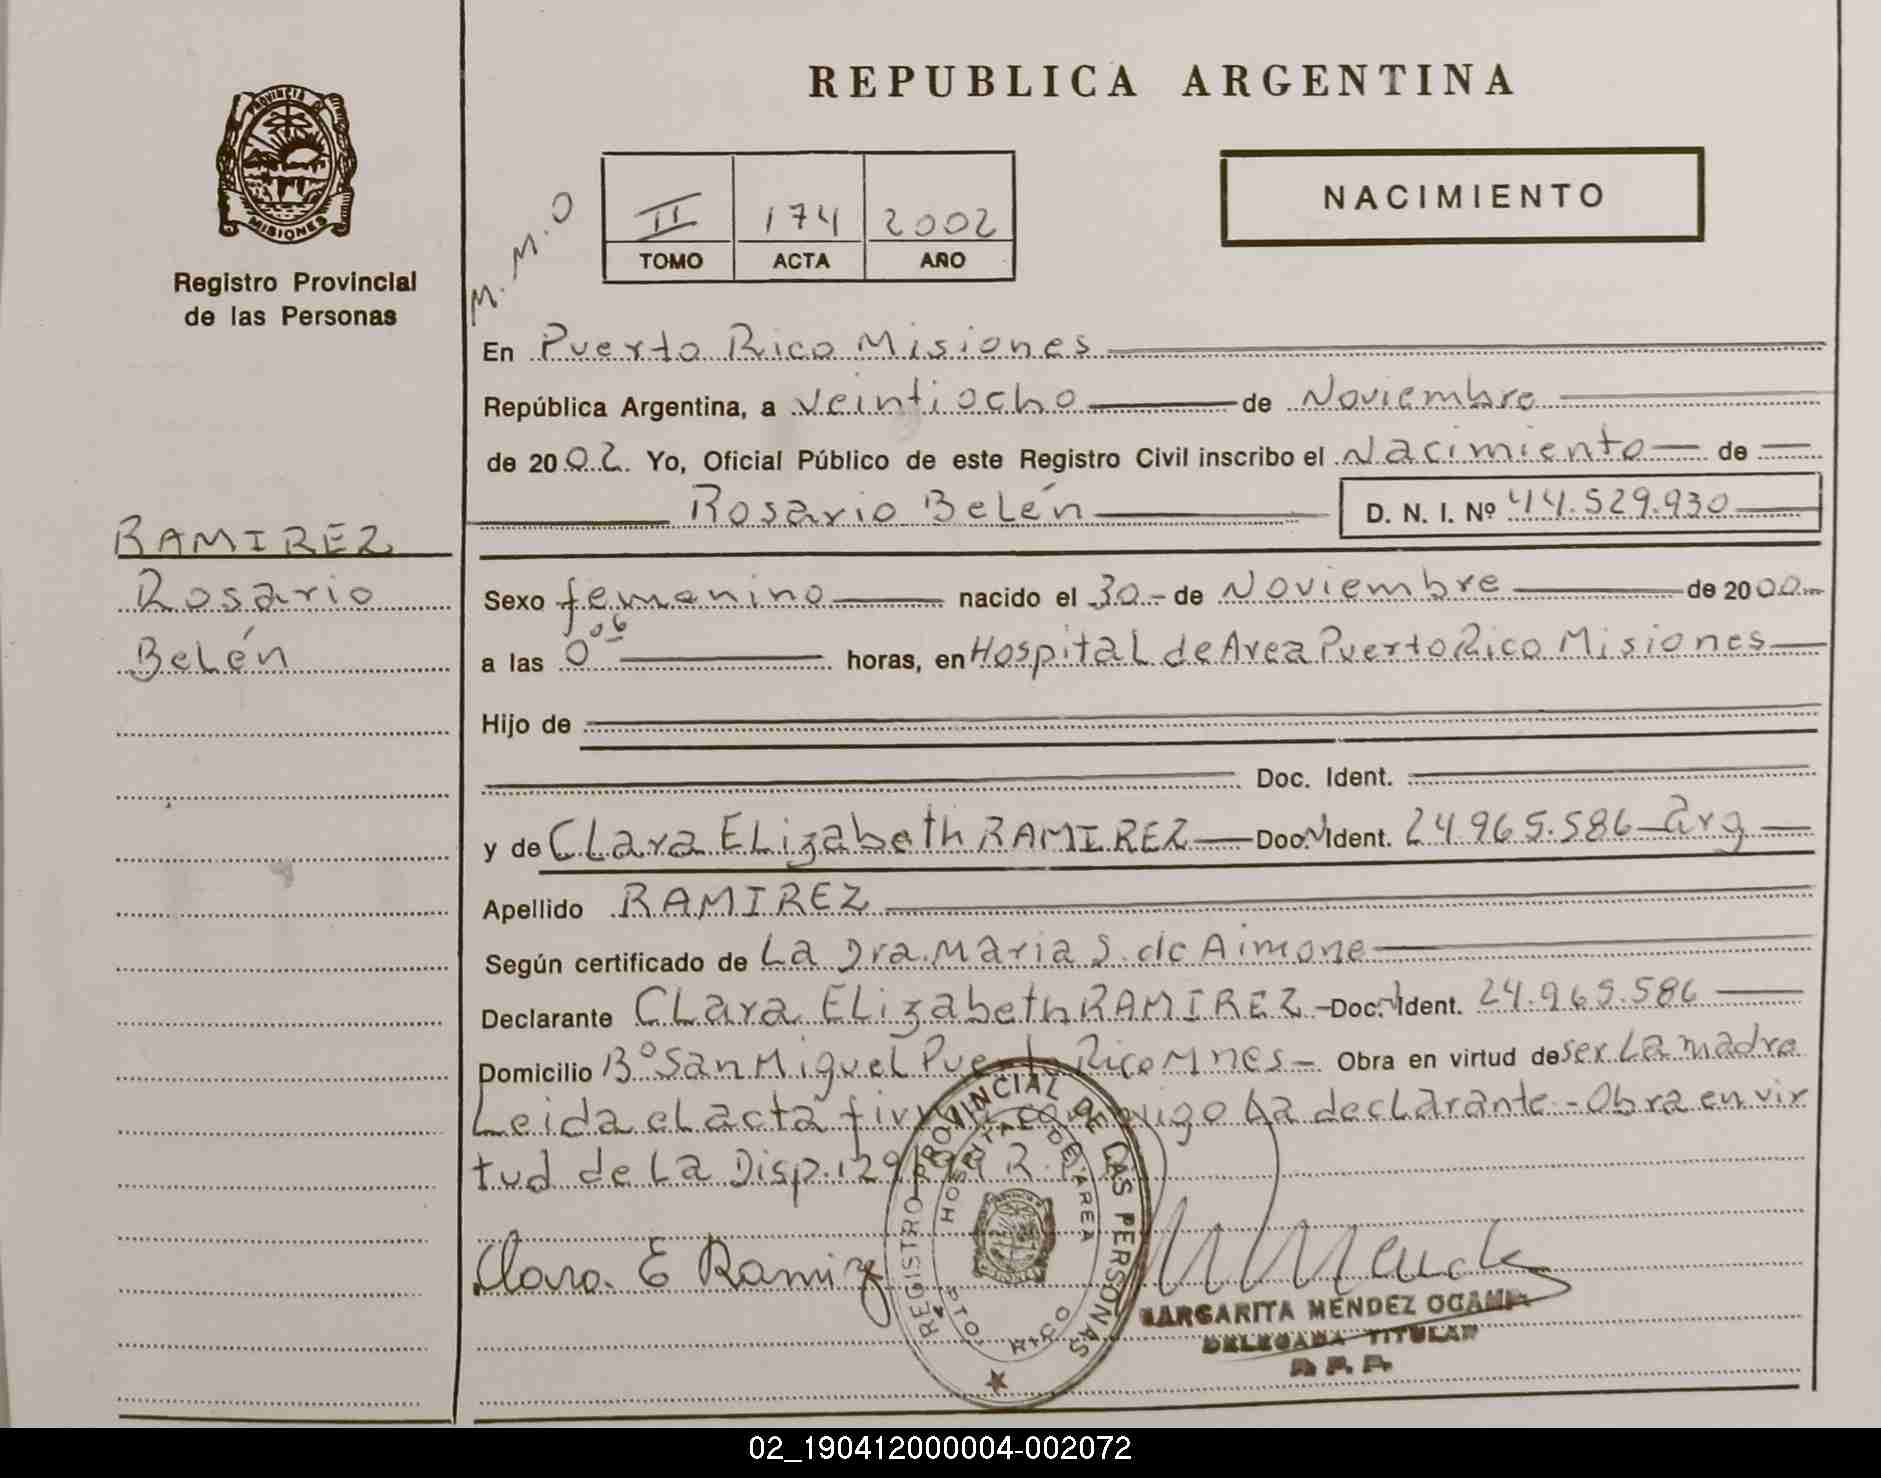 REPUBLICA ARGENTINA
PROVINCIA DE MISIONES
Registro Provincial
de las Personas
M.M.O
II 174 2002
TOMO ACTA AÑO
NACIMIENTO
En Puerto Rico Misiones
República Argentina, a veintiocho de Noviembre
de 2002. Yo, Oficial Público de este Registro Civil inscribo el Nacimiento de
Rosario Belén D. N. I. Nº 44.529.930
RAMIREZ
Rosario
Belén
Sexo femenino nacido el 30 de Noviembre de 2000
a las 0 06 horas, en Hospital de Area Puerto Rico Misiones
Hijo de
Doc. Ident.
y de Clara Elizabeth RAMIREZ Doc. N Ident. 24.965.586 arg
Apellido RAMIREZ
Según certificado de La Dra. Maria S. de Aimone
Declarante Clara Elizabeth RAMIREZ Doc. N Ident. 24.965.586
Domicilio Bº San Miguel Puerto Rico Mnes Obra en virtud de ser La madre
Leida el acta firma conmigo La declarante - Obra en vir
tud de La Disp. 129
Clara E Ramirez
REGISTRO PROVINCIAL DE LAS PERSONAS
HOSPITAL DE AREA
PTO. RICO
MARGARITA MENDEZ OCAMPO
DELEGADA TITULAR
02_190412000004-002072